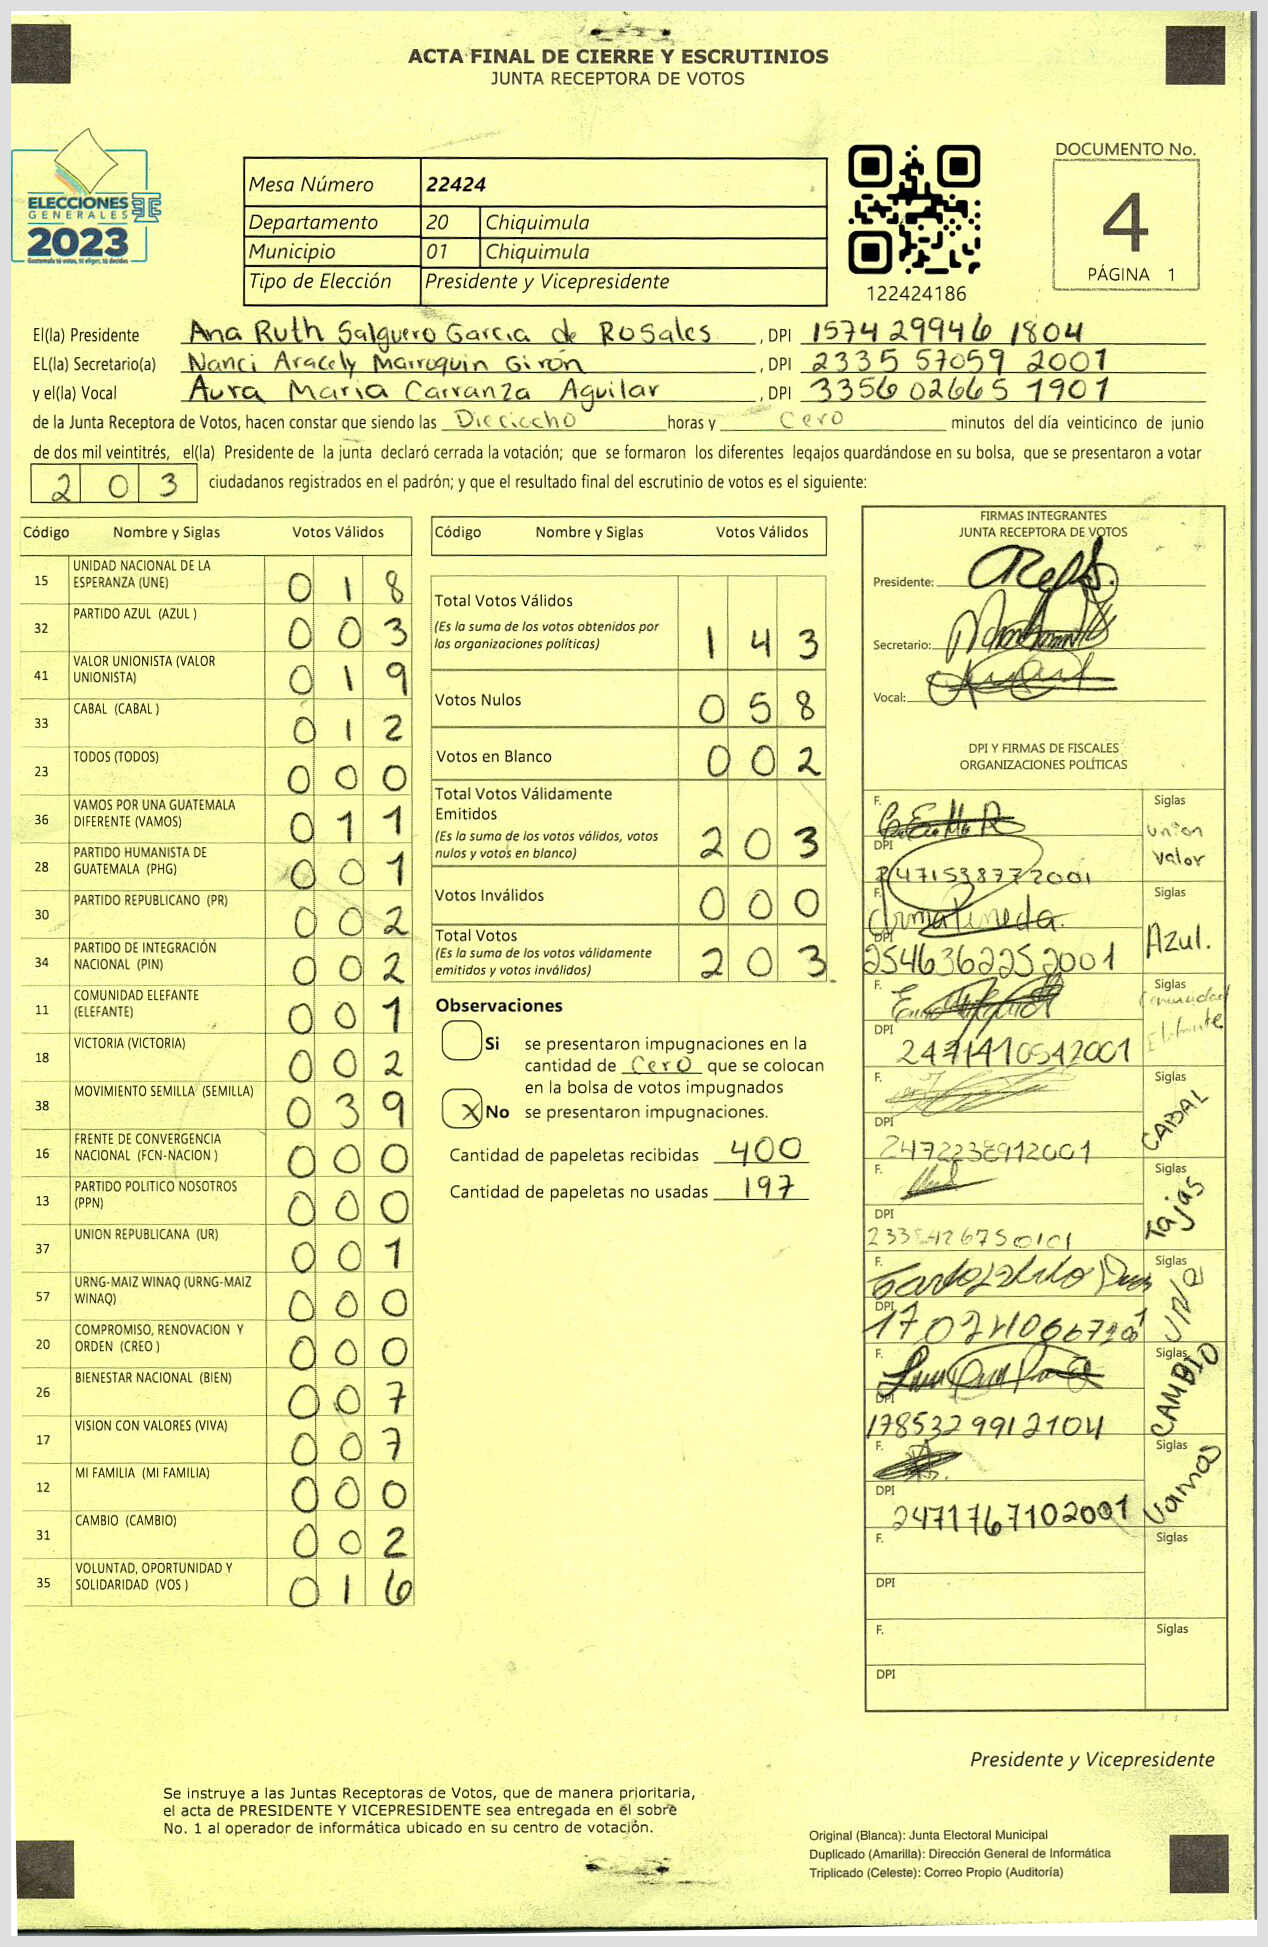 ACTA FINAL DE CIERRE Y ESCRUTINIOS
JUNTA RECEPTORA DE VOTOS
ELECCIONES
GENERALES
2023
Guatemala tú votas, tú eliges, tú decides
Mesa Número 22424
Departamento 20 Chiquimula
Municipio 01 Chiquimula
Tipo de Elección Presidente y Vicepresidente
122424186
DOCUMENTO No.
4
PÁGINA 1
El(la) Presidente Ana Ruth Salguero Garcia de Rosales, DPI 1574 29946 1804
EL(la) Secretario(a) Nanci Aracely Marroquin Girón, DPI 2335 57059 2001
y el(la) Vocal Aura Maria Carranza Aguilar, DPI 3356 02665 1901
de la Junta Receptora de Votos, hacen constar que siendo las Dieciocho horas y Cero minutos del día veinticinco de junio
de dos mil veintitrés, el(la) Presidente de la junta declaró cerrada la votación; que se formaron los diferentes legajos guardándose en su bolsa, que se presentaron a votar
203 ciudadanos registrados en el padrón; y que el resultado final del escrutinio de votos es el siguiente:
Código Nombre y Siglas Votos Válidos
15 UNIDAD NACIONAL DE LA ESPERANZA (UNE) 018
32 PARTIDO AZUL (AZUL ) 003
41 VALOR UNIONISTA (VALOR UNIONISTA) 019
33 CABAL (CABAL ) 012
23 TODOS (TODOS) 000
36 VAMOS POR UNA GUATEMALA DIFERENTE (VAMOS) 011
28 PARTIDO HUMANISTA DE GUATEMALA (PHG) 001
30 PARTIDO REPUBLICANO (PR) 002
34 PARTIDO DE INTEGRACIÓN NACIONAL (PIN) 002
11 COMUNIDAD ELEFANTE (ELEFANTE) 001
18 VICTORIA (VICTORIA) 002
38 MOVIMIENTO SEMILLA (SEMILLA) 039
16 FRENTE DE CONVERGENCIA NACIONAL (FCN-NACION ) 000
13 PARTIDO POLITICO NOSOTROS (PPN) 000
37 UNION REPUBLICANA (UR) 001
57 URNG-MAIZ WINAQ (URNG-MAIZ WINAQ) 000
20 COMPROMISO, RENOVACION Y ORDEN (CREO ) 000
26 BIENESTAR NACIONAL (BIEN) 007
17 VISION CON VALORES (VIVA) 007
12 MI FAMILIA (MI FAMILIA) 000
31 CAMBIO (CAMBIO) 002
35 VOLUNTAD, OPORTUNIDAD Y SOLIDARIDAD (VOS ) 016
Código Nombre y Siglas Votos Válidos
Total Votos Válidos 143
(Es la suma de los votos obtenidos por
las organizaciones políticas)
Votos Nulos 058
Votos en Blanco 002
Total Votos Válidamente
Emitidos 203
(Es la suma de los votos válidos, votos
nulos y votos en blanco)
Votos Inválidos 000
Total Votos 203
(Es la suma de los votos válidamente
emitidos y votos inválidos)
Observaciones
Si se presentaron impugnaciones en la
cantidad de Cero que se colocan
en la bolsa de votos impugnados
X No se presentaron impugnaciones.
Cantidad de papeletas recibidas 400
Cantidad de papeletas no usadas 197
FIRMAS INTEGRANTES
JUNTA RECEPTORA DE VOTOS
Presidente:
Secretario:
Vocal:
DPI Y FIRMAS DE FISCALES
ORGANIZACIONES POLÍTICAS
F. Siglas
union
valor
DPI 2471538772001
F. Siglas
Azul.
DPI 2546362252001
F. Siglas
Comunidad
Elefante
DPI 2471410542001
F. Siglas
CABAL
DPI 2472238912001
F. Siglas
Tajas
DPI
F. Siglas
DPI
F. Siglas
CAMBIO
DPI 1785329912104
F. Siglas
Vamos
DPI 2471767102001
F. Siglas
DPI
F. Siglas
DPI
Presidente y Vicepresidente
Se instruye a las Juntas Receptoras de Votos, que de manera prioritaria,
el acta de PRESIDENTE Y VICEPRESIDENTE sea entregada en el sobre
No. 1 al operador de informática ubicado en su centro de votación.
Original (Blanca): Junta Electoral Municipal
Duplicado (Amarilla): Dirección General de Informática
Triplicado (Celeste): Correo Propio (Auditoría)